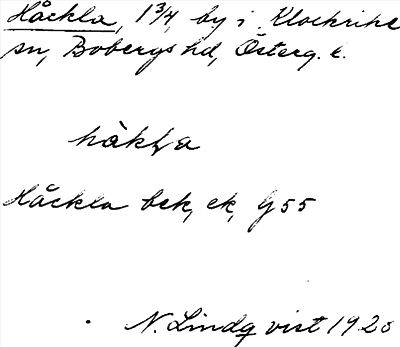 Håckla, 1 3/4, by i Klockrike
sn, Bobergs hd, Österg. l.
håkḷa
Håckla bek, ek, G 55
N. Lindqvist 1920